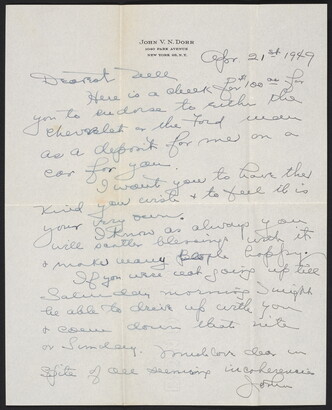 JOHN V. N. DORR
PARK AVENUE
NEW YORK, N.Y.
Apr. 21st 1949
Dearest Nell
Here is a check for $100 for
you to endorse to either the
Chevrolet or the Ford man
as a deposit for me on a
car for you.
I want you to have the
kind you wish & to feel it is
your very own.
I know as always you
will scatter blessings with it
& make many people happy.
If you were not going up till
Saturday morning I might
be able to drive up with you
& come down that nite
or Sunday. Much love dear in
spite of all seeming incoherencies
John